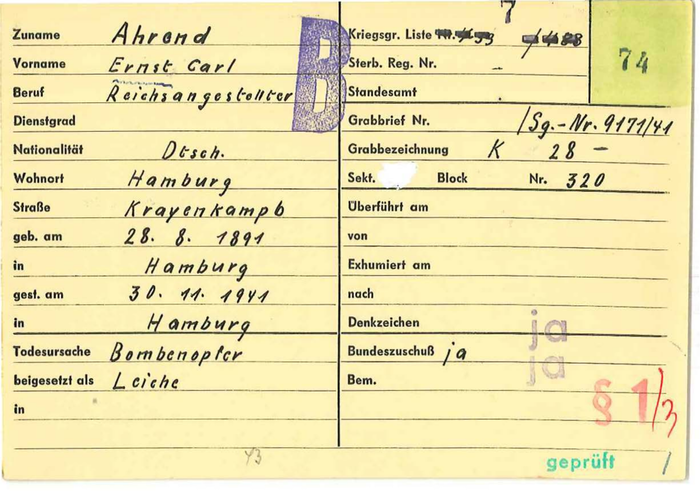 Zuname Ahrend
Vorname Ernst Carl
Beruf Reichsangestellter
Dienstgrad
Nationalität Dtsch.
Wohnort Hamburg
Straße Krayenkampb
geb. am 28. 8. 1891
in Hamburg
gest. am 30. 11. 1941
in Hamburg
Todesursache Bombenopfer
beigesetzt als Leiche
in
43
B
7
Kriegsgr. Liste /488
74
Sterb. Reg. Nr.
Standesamt
Grabbrief Nr. /Sg.-Nr. 9171/41
Grabbezeichnung K 28 –
Sekt. Block Nr. 320
Überführt am
von
Exhumiert am
nach
Denkzeichen ja
Bundeszuschuß ja ja
Bem.
§ 1/3
geprüft /